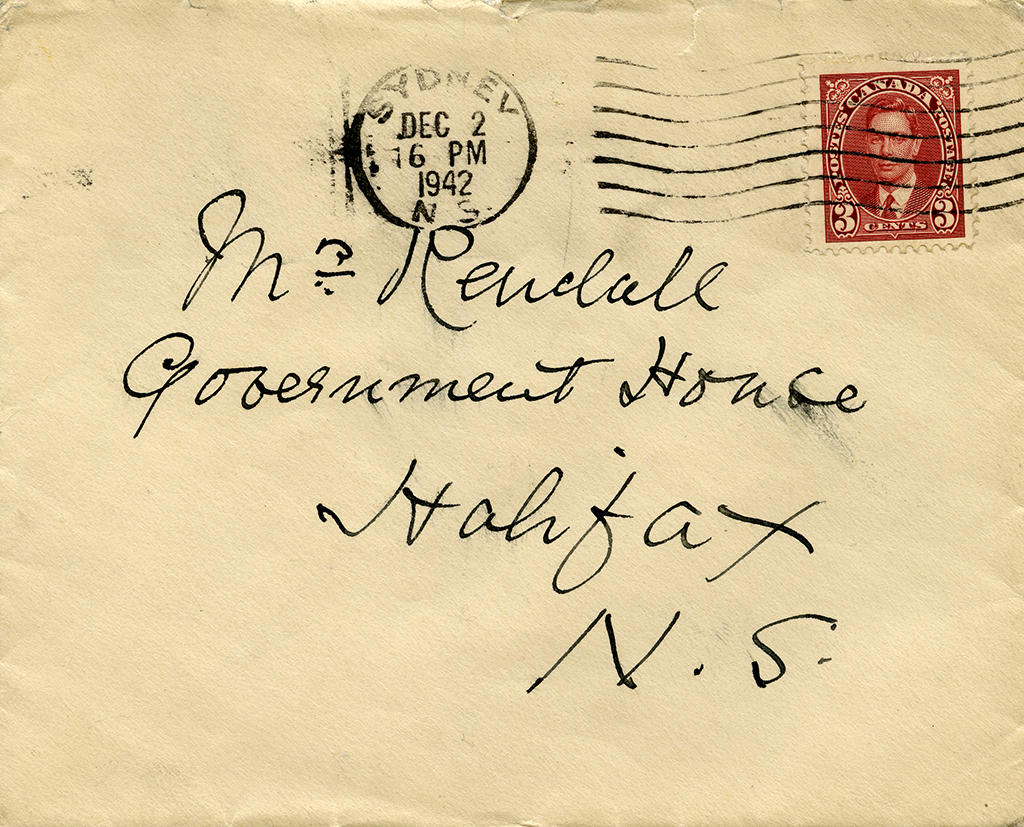 SYDNEY
DEC 2
16 PM
1942
N S.
POSTES CANADA POSTAGE
3 CENTS 3
Mr. Rendall
Government House
Halifax
N. S.